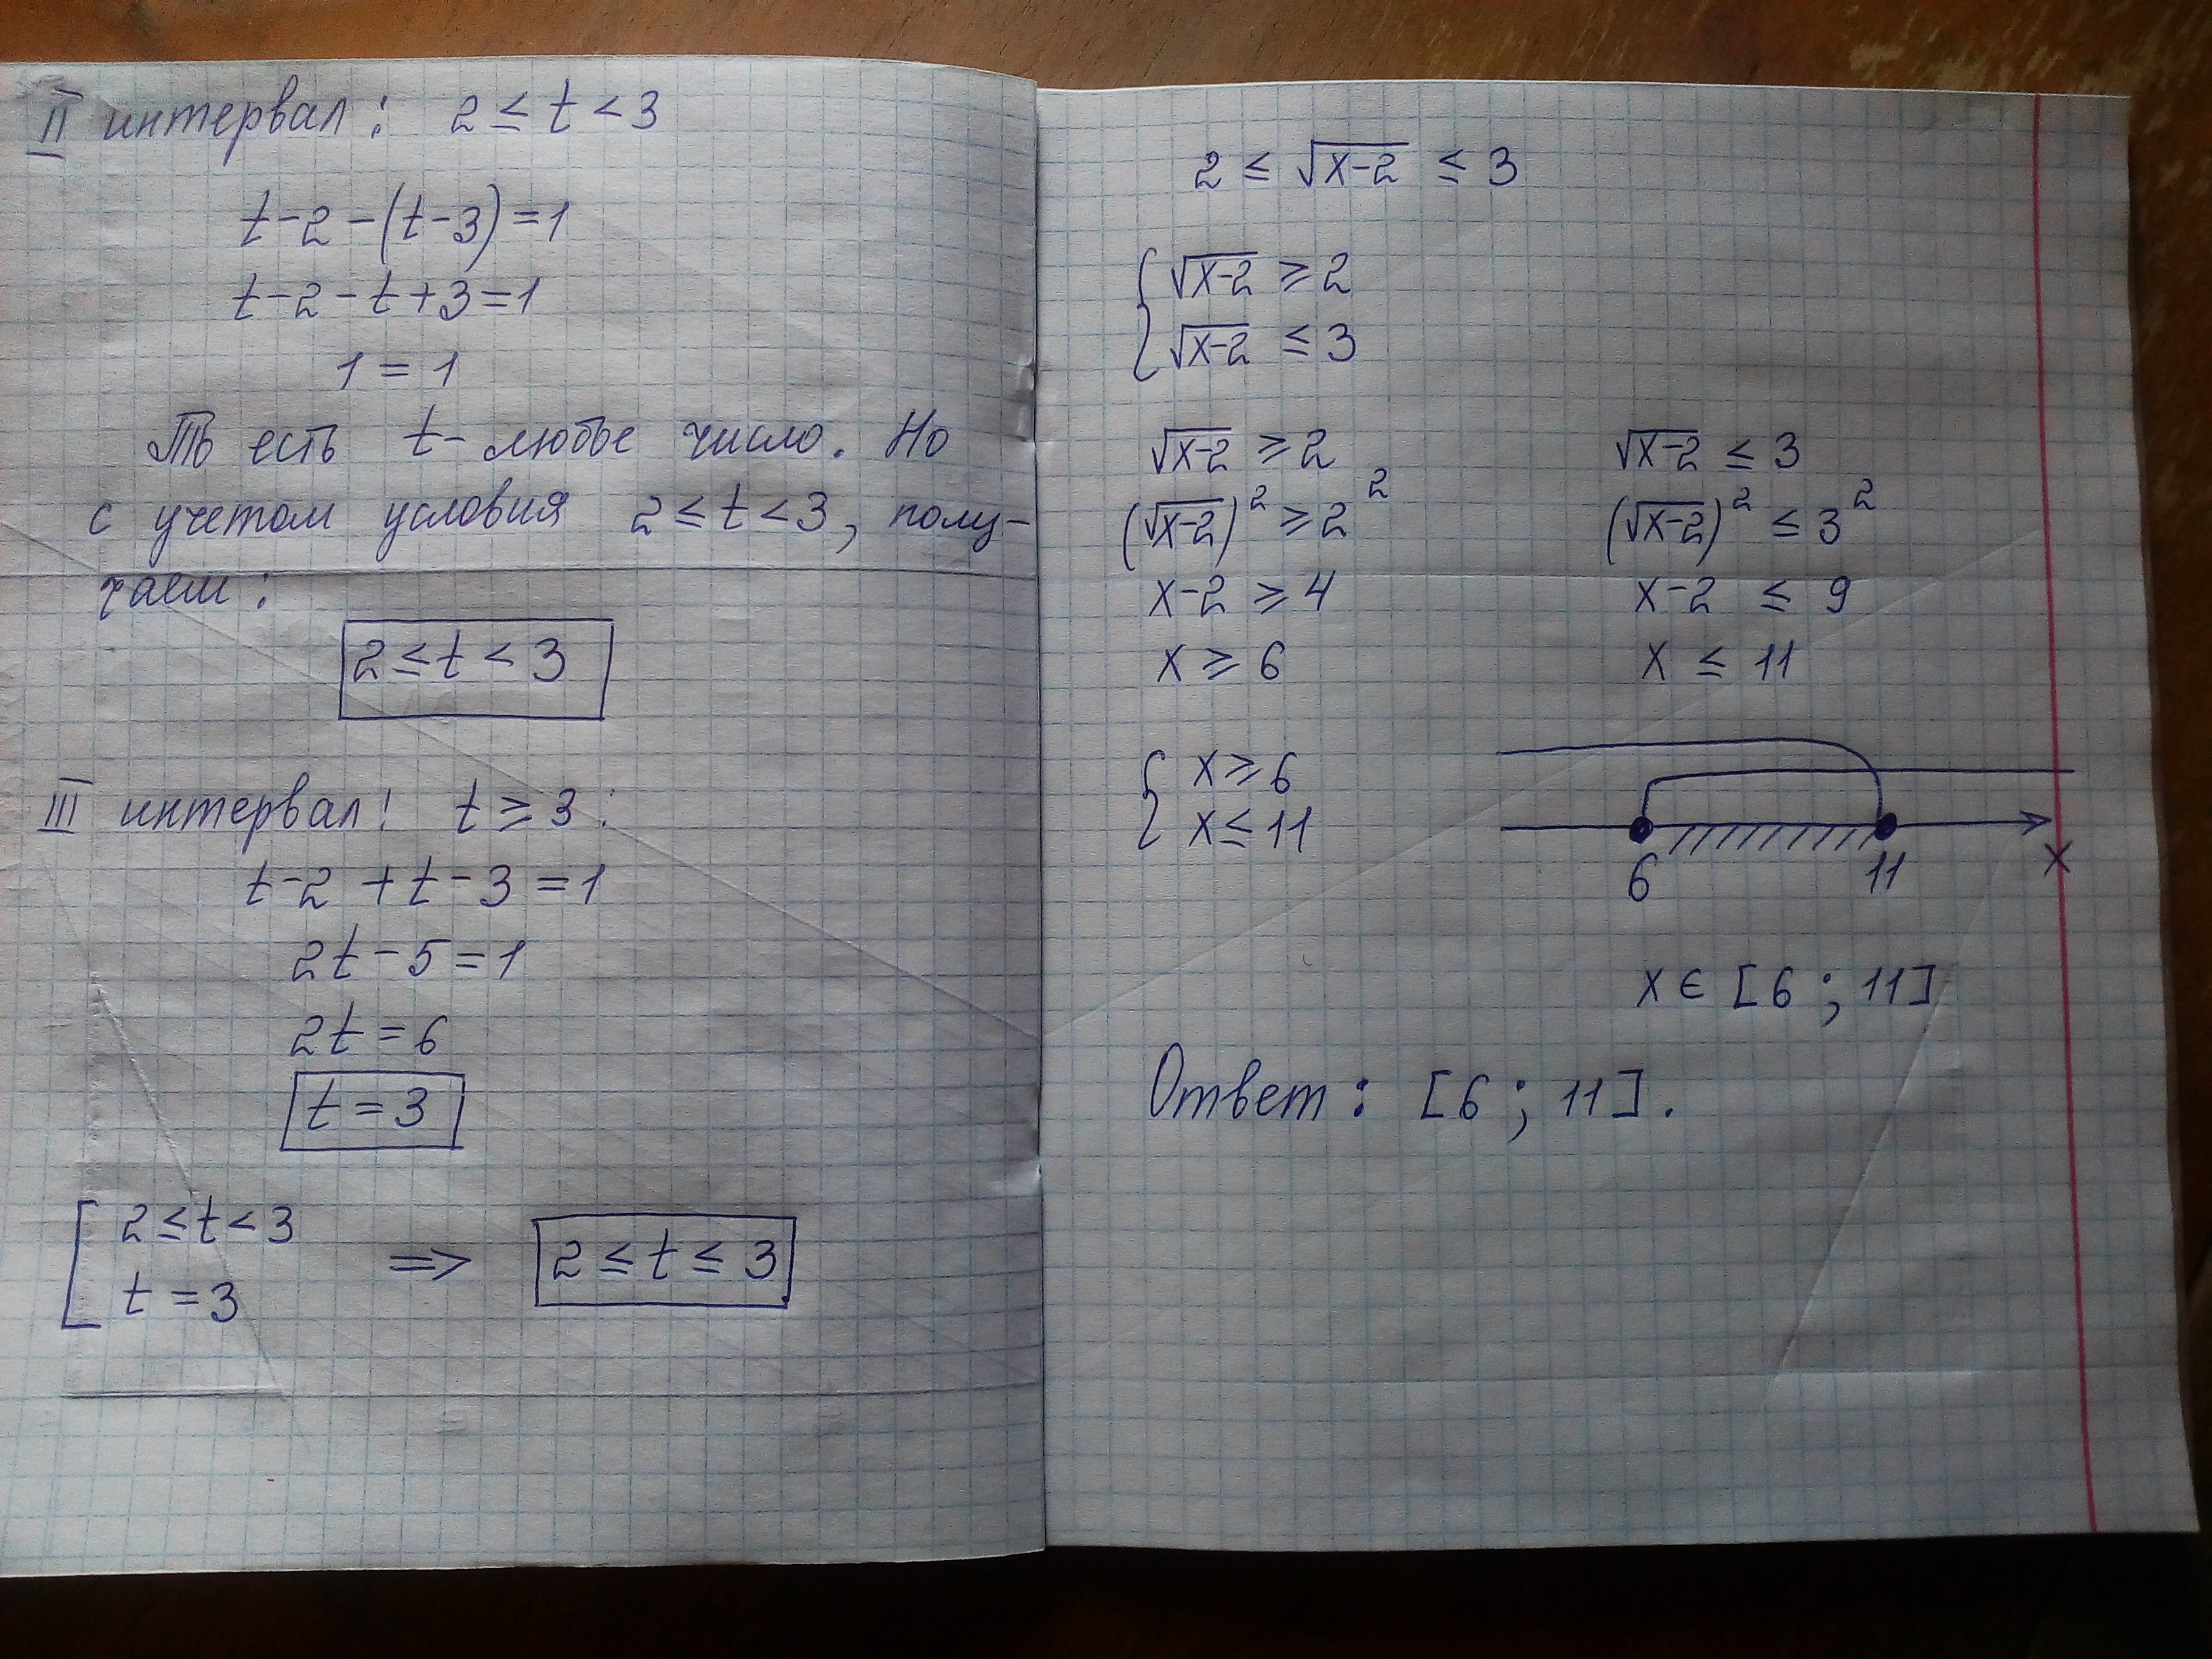 II интервал: 2 ≤ t < 3
t-2-(t-3)=1
t-2-t+3=1
1 = 1
То есть t- любое число. Но
с учетом условия 2 ≤ t < 3, полу-
чаем:
2 ≤ t < 3
III интервал: t ≥ 3:
t-2 + t-3 = 1
2t-5=1
2t=6
t=3
2 ≤ t < 3
t = 3
⇒ 2 ≤ t ≤ 3
2 ≤ √(x-2) ≤ 3
{ √(x-2) ≥ 2
√(x-2) ≤ 3
√(x-2) ≥ 2 √(x-2) ≤ 3
(√(x-2))² ≥ 2² (√(x-2))² ≤ 3²
x-2 ≥ 4 x-2 ≤ 9
x ≥ 6 x ≤ 11
{ x ≥ 6
x ≤ 11
6 11 x
x ∈ [6 ; 11]
Ответ: [6 ; 11].